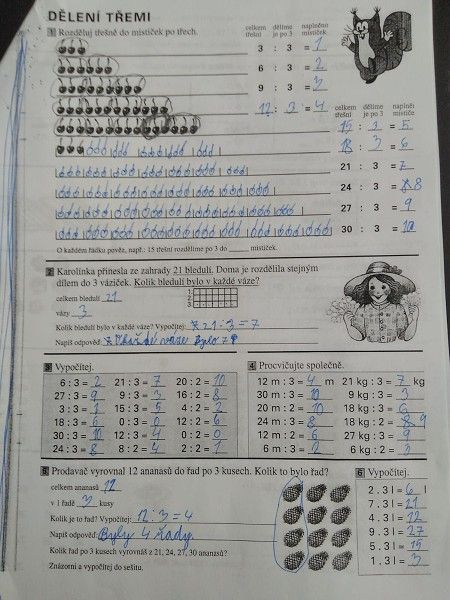 DĚLENÍ TŘEMI
1 Rozděluj třešně do mističek po třech.
celkem třešní dělíme je po 3 naplněno mističek
3 : 3 = 1
6 : 3 = 2
9 : 3 = 3
12 : 3 = 4
celkem třešní dělíme je po 3 naplní mističek
15 : 3 = 5
18 : 3 = 6
21 : 3 = 7
24 : 3 = 8
27 : 3 = 9
30 : 3 = 10
O každém řádku pověz, např.: 15 třešní rozdělíme po 3 do ____ mističek.
2 Karolínka přinesla ze zahrady 21 bledulí. Doma je rozdělila stejným
dílem do 3 váziček. Kolik bledulí bylo v každé váze?
celkem bledulí 21
vázy 3
1.
2.
3.
Kolik bledulí bylo v každé váze? Vypočítej. 21 : 3 = 7
Napiš odpověď: V každé váze bylo 7
3 Vypočítej.
6 : 3 = 2 21 : 3 = 7 20 : 2 = 10
27 : 3 = 9 9 : 3 = 3 16 : 2 = 8
3 : 3 = 1 15 : 3 = 5 4 : 2 = 2
18 : 3 = 6 0 : 3 = 0 12 : 2 = 6
30 : 3 = 10 12 : 3 = 4 0 : 2 = 0
24 : 3 = 8 8 : 2 = 4 2 : 2 = 1
4 Procvičujte společně.
12 m : 3 = 4 m 21 kg : 3 = 7 kg
30 m : 3 = 10 9 kg : 3 = 3
20 m : 2 = 10 18 kg : 3 = 6
24 m : 3 = 8 18 kg : 2 = 9
12 m : 2 = 6 27 kg : 3 = 9
6 m : 3 = 2 6 kg : 3 = 2
5 Prodavač vyrovnal 12 ananasů do řad po 3 kusech. Kolik to bylo řad?
celkem ananasů 12
v 1 řadě 3 kusy
Kolik je to řad? Vypočítej. 12 : 3 = 4
Napiš odpověď: Byly 4 řady.
Kolik řad po 3 kusech vyrovnáš z 21, 24, 27, 30 ananasů?
Znázorni a vypočítej do sešitu.
6 Vypočítej.
2 . 3 l = 6 l
7 . 3 l = 21
4 . 3 l = 12
9 . 3 l = 27
5 . 3 l = 15
1 . 3 l = 3